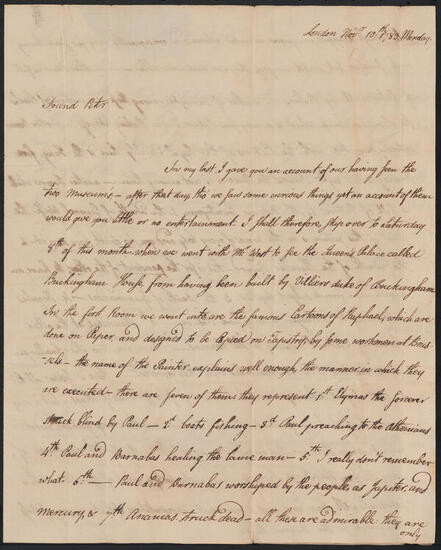 London Nov.r 10th 83. Monday.
Friend Peter
In my last I gave you an account of our having seen the
two Museums – after that day, tho' we saw some curious things yet an account of them
would give you little or no entertainment. I shall therefore, skip over to Saturday
8th of this month – when we went with Mr West to see the Queen's Palace called
Buckingham House, from having been built by Villiers duke of Buckingham
In the first Room we went into are the famous Cartoons of Raphael, which are
done on Paper and design'd to be Copied on Tapistry, by some workmen at Brus-
-sels – the name of the Painter explains well enough the manner in which they
are executed – there are seven of them; they represent 1st Elymas the sorcerer
struck blind by Paul – 2d boats fishing – 3d Paul preaching to the Athenians
4th Paul and Barnabas healing the lame man – 5th I really don't remember
what 6th – Paul and Barnabas worshiped by the people, as Jupiter, and
Mercury, & 7th Ananias struck dead – all these are admirable they are
only